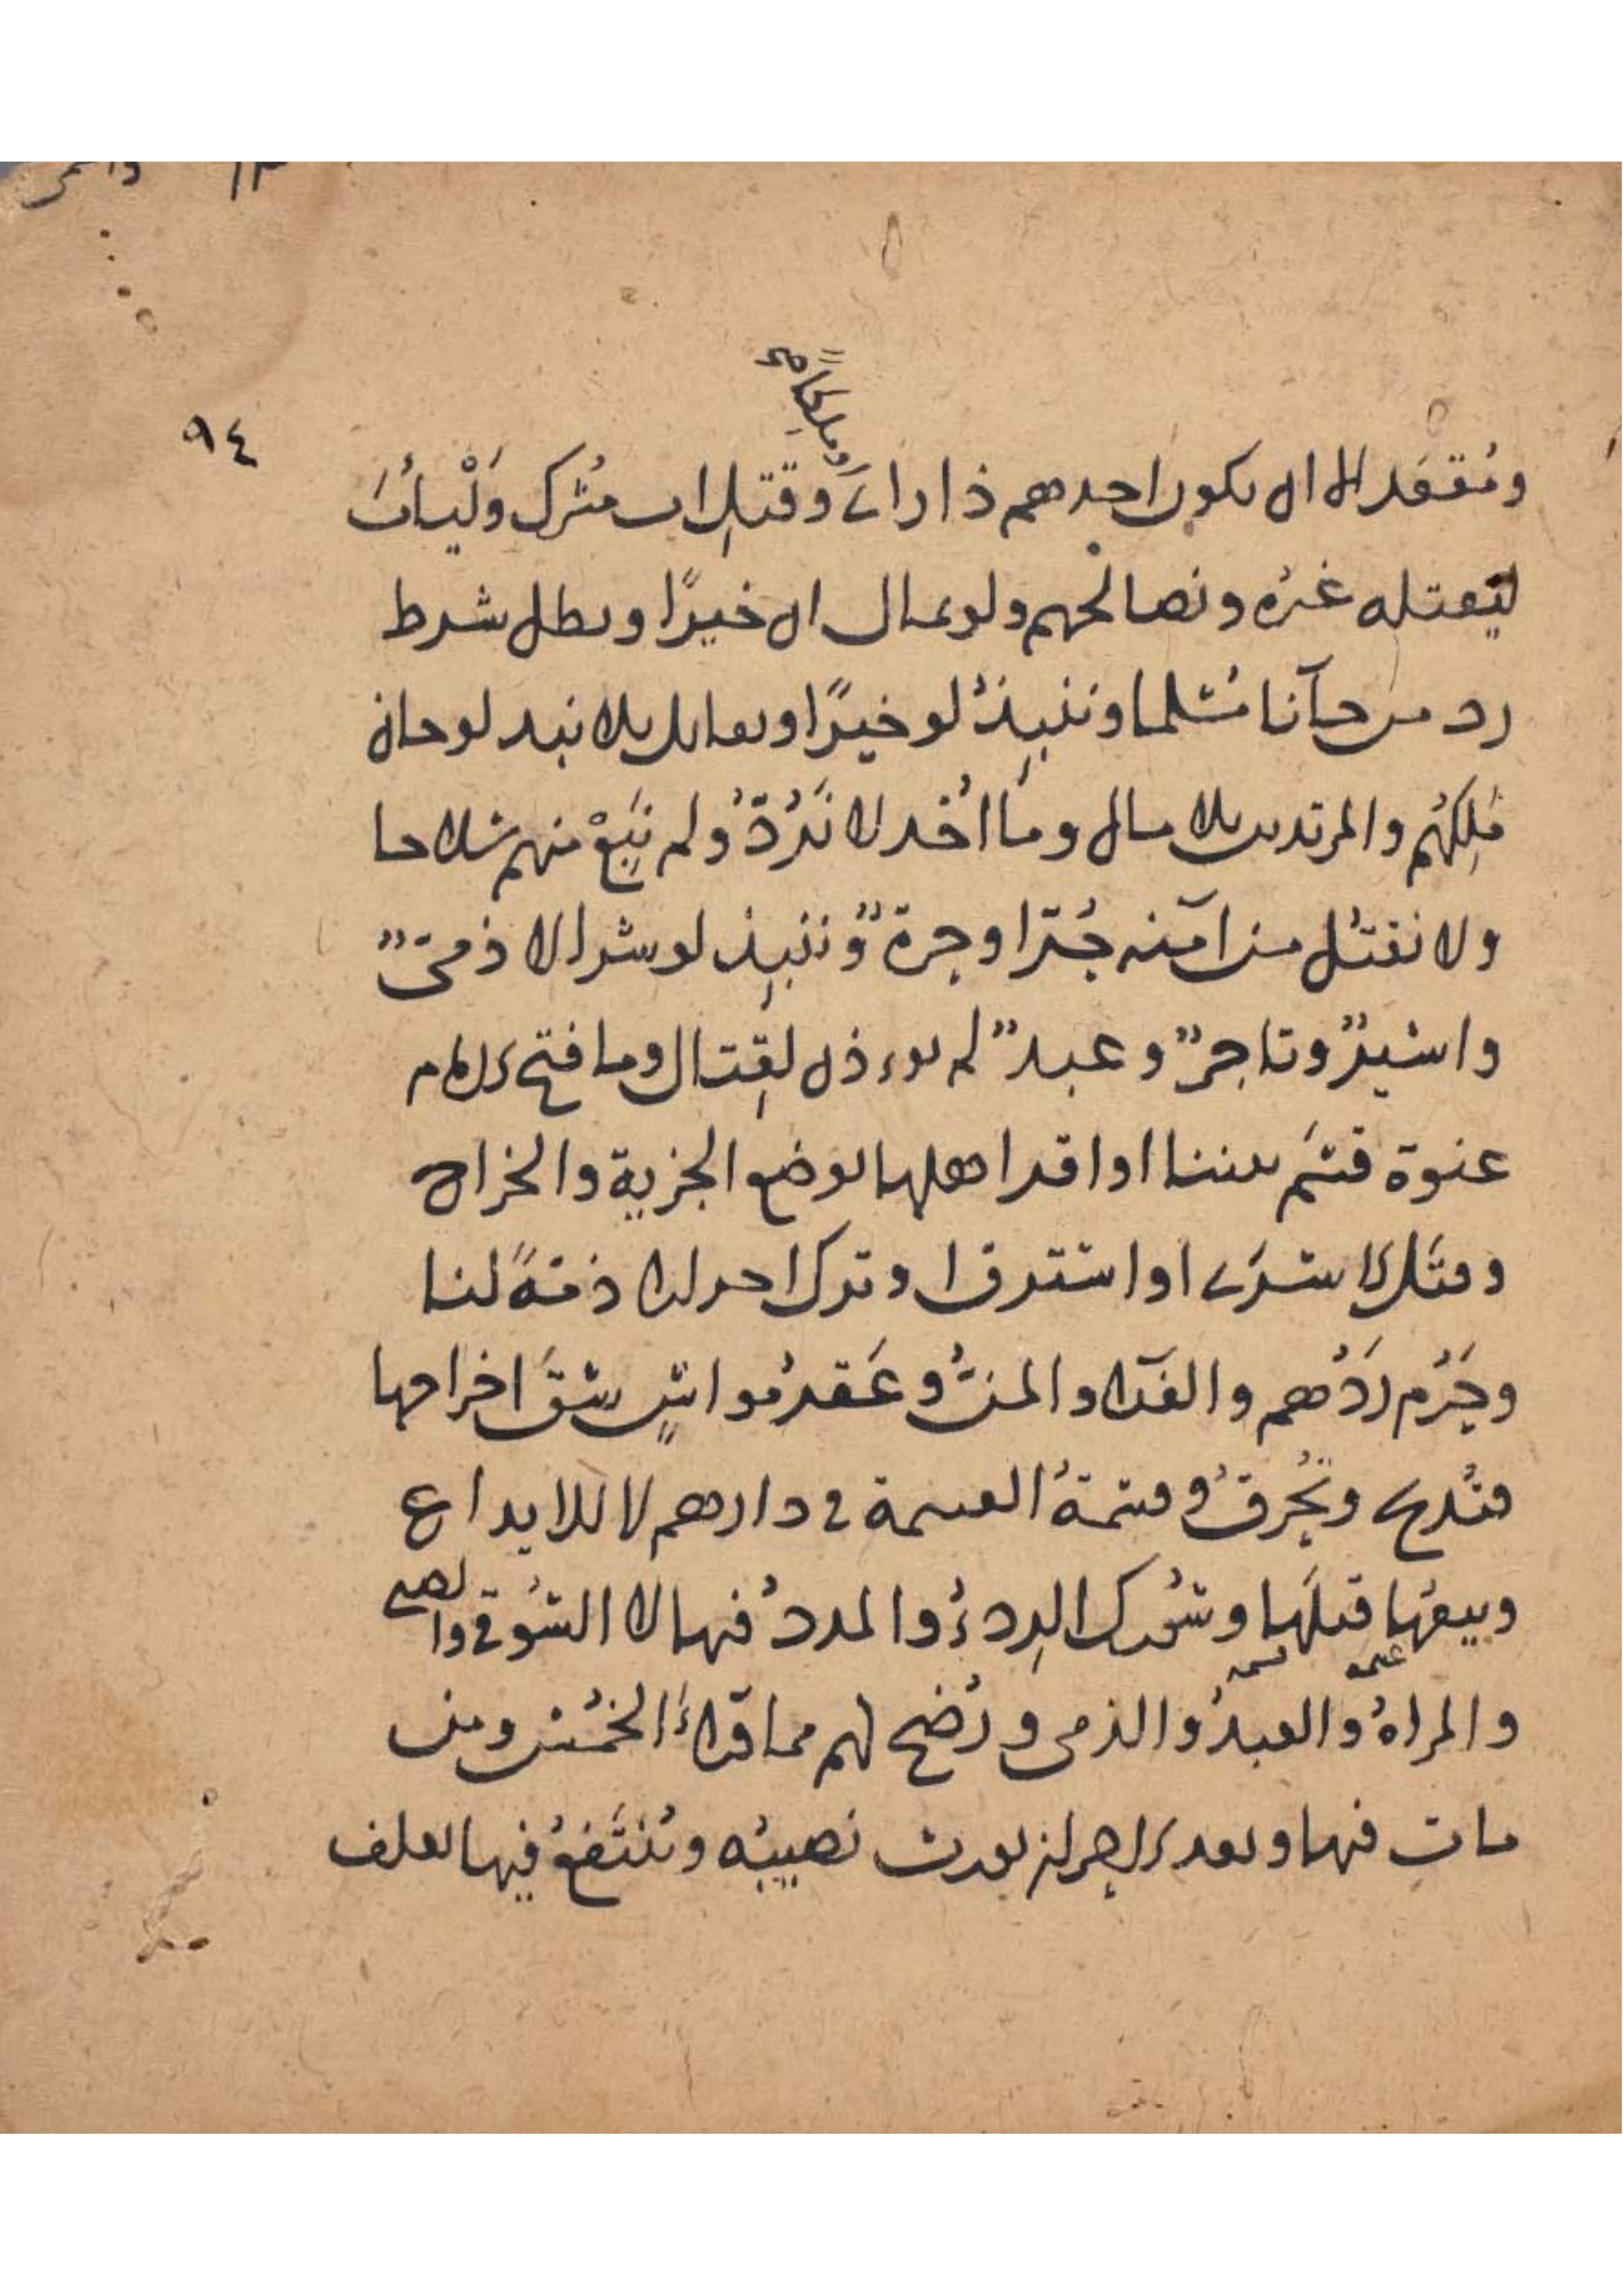 ٩٤
وملكا صح
ومُقعَد الا ان يكون احدهم ذا راي وقتل اب مشرك وَلْيأبَ
ليقتله غيره ونصالحهم ولو بمال ان خيرًا وبطل شرط
رد من جآنا مسلما وننبِذُ لو خيرًا ونقاتل بلا نبذ لو خان
مَلِكهُم والمرتدين بلا مال وما اُخذ لا نَرُدّهُ ولم نَبِعْ منهم سلاحا
ولا نقتل من امّنه حُرّ او حرةٌ وننبِذ لو شرا لا ذميٌّ
واسيرٌ وتاجرٌ وعبدٌ لم يوءذن لِقتال وما فتح الامام
عنوة قسَم بيننا او اقر اهلها بوضع الجزية والخراج
وقتَل الاسرَى او استرق او ترك احرارا ذمّةً لنا
وحَرُم رَدُّهم والفدا والمنُّ وعَقرُ مواشٍ شقَّ اخراجها
فتُذبح وتُحرقُ وقسمةُ الغنيمة في دارهم لا للايداع
وبيعُها قبلَها وشُرك الرِدءُ والمددُ فيها لا السُوقي والصبي
غنيمة قسمة
والمراةُ والعبدُ والذمي ورُضخ لهم مما قبلَ الخُمُس ومن
مات فيها وبعد الاِحراز يورث نصيبُه ويُنتَفعُ فيها بعلف